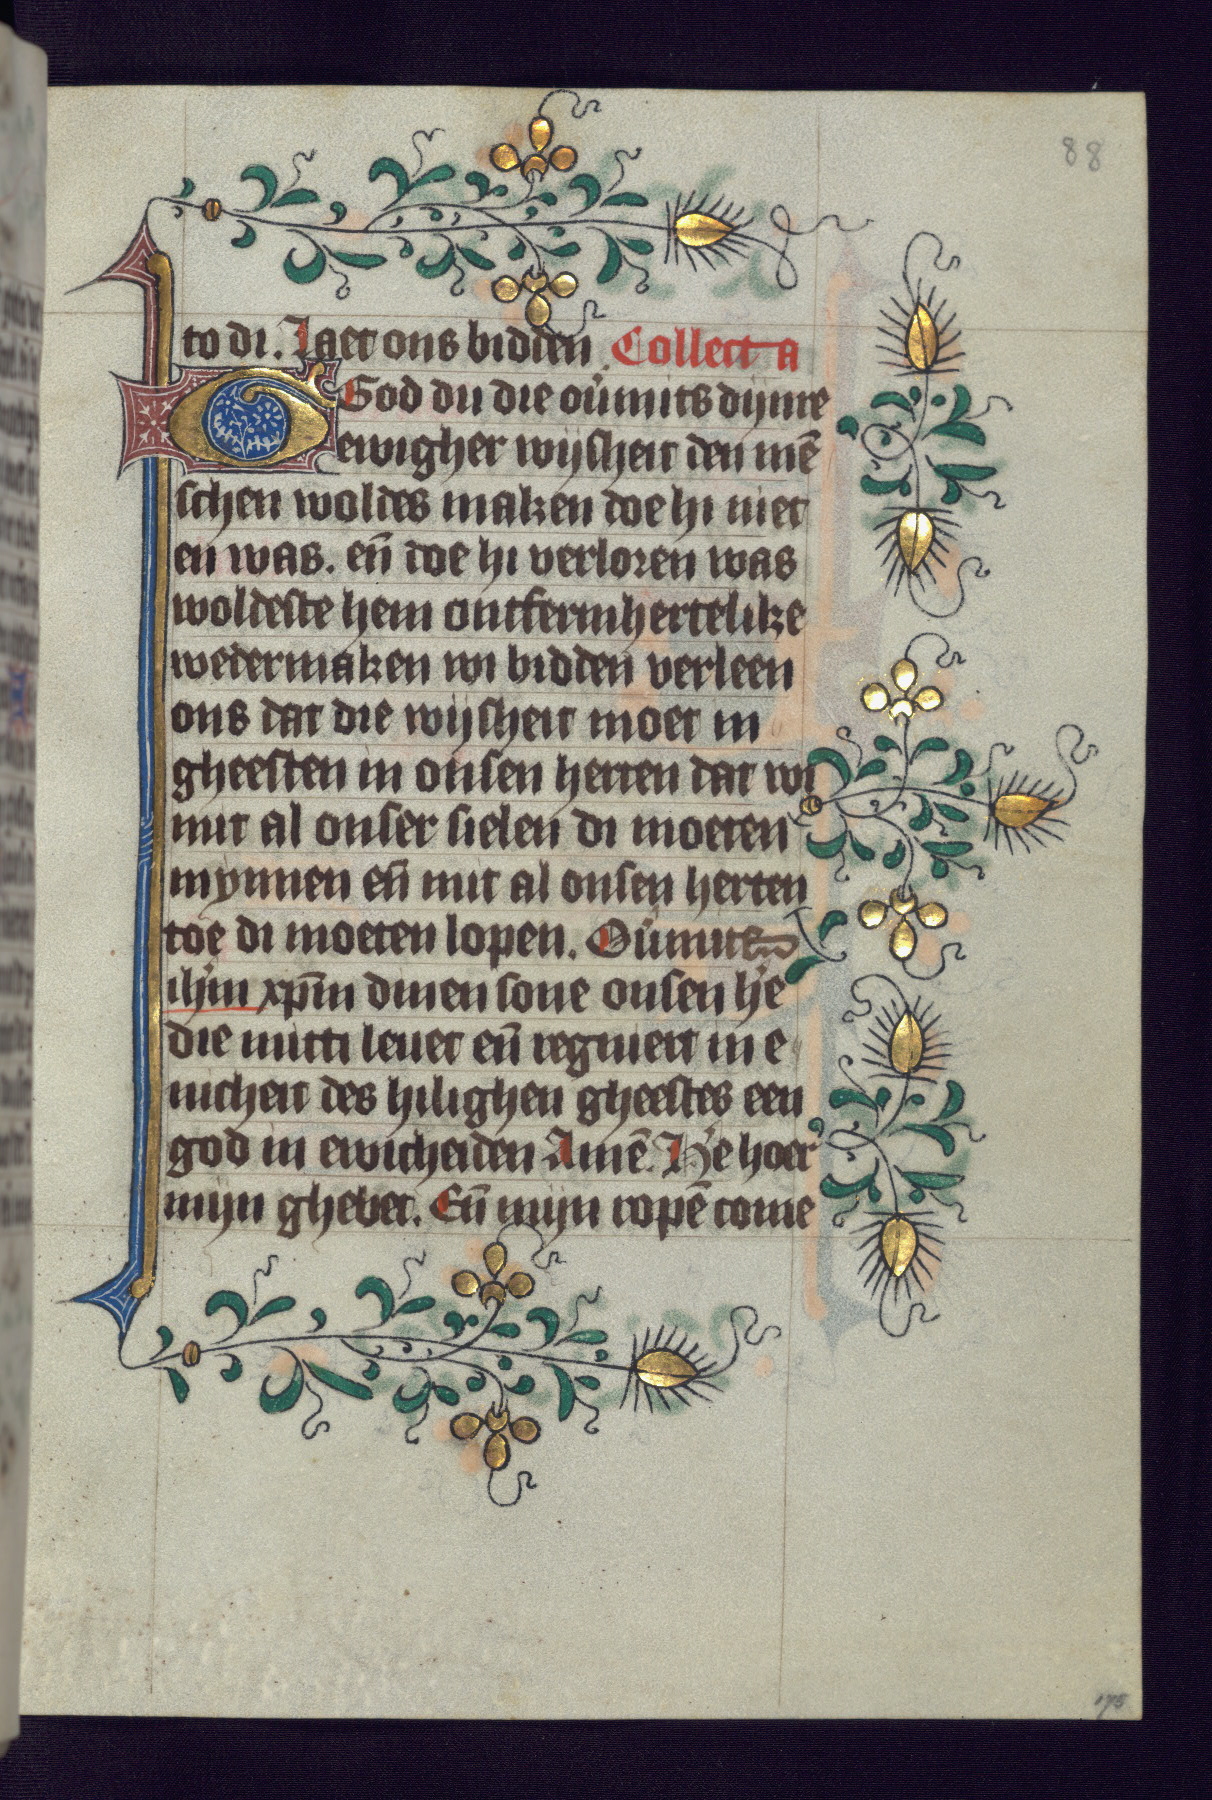 88
to di. Laet ons bidden. Collecta
O God du die ou̓mits dijnre
ewigher wijsheit den mē
schen woldes maken doe hi niet
en was. en̄ doe hi verloren was
woldeste hem ontfermhertelike
wedermaken wi bidden verleen
ons dat die wijsheit moet in
gheesten in onsen herten dat wi
mit al onser sielen di moeten
mynnen en̄ mit al onsen herten
toe di moeten lopen. Ou̓mits
ihm̄ xpm̄ dinen sone onsen he̓
die mitti leuet en̄ regniert in e
nicheit des hilighen gheestes een
god in ewicheiden Amē. He̓ hoer
mijn ghebet. En̄ mijn ropē come
175